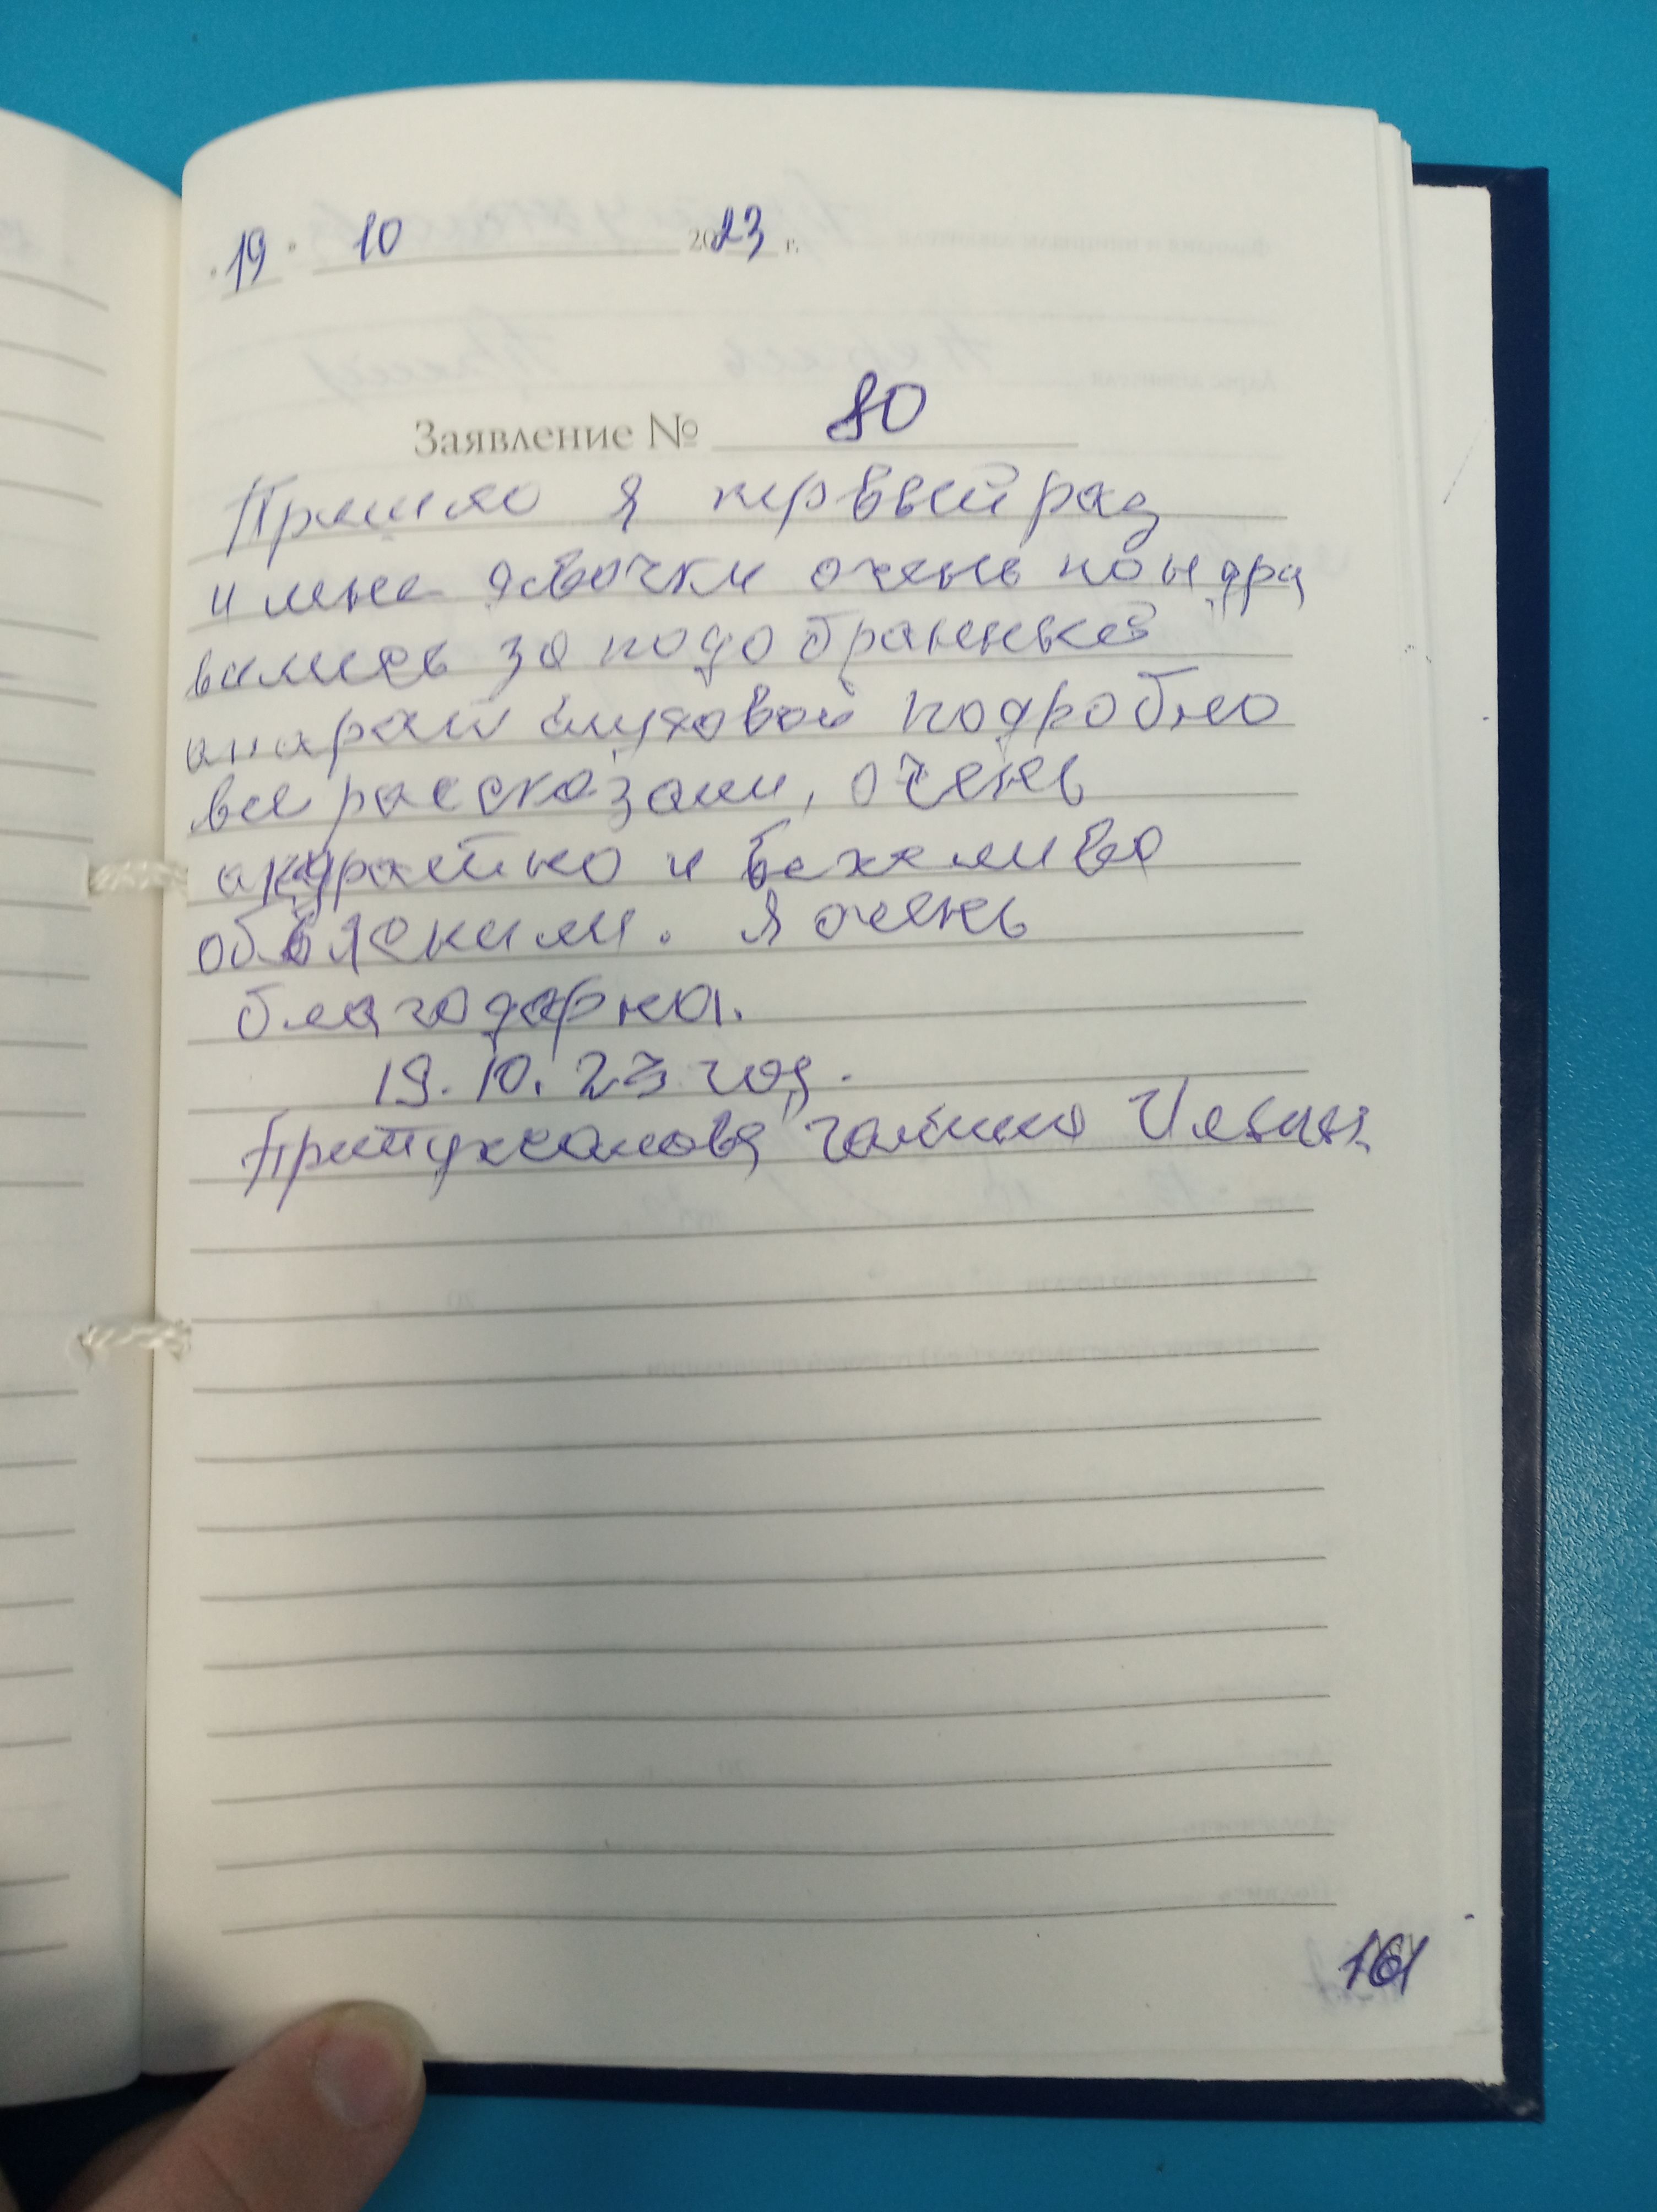 "19" 10 2023 г.
Заявление № 80
Пришло я первый раз
и мне девочки очень пондра
вились за подобранный
апарат слуховой подробно
все рассказали, очень
акуратно и вежеливо
обьяснили. Я очень
благодарна.
19.10.23 год.
Притужалова Галина
161